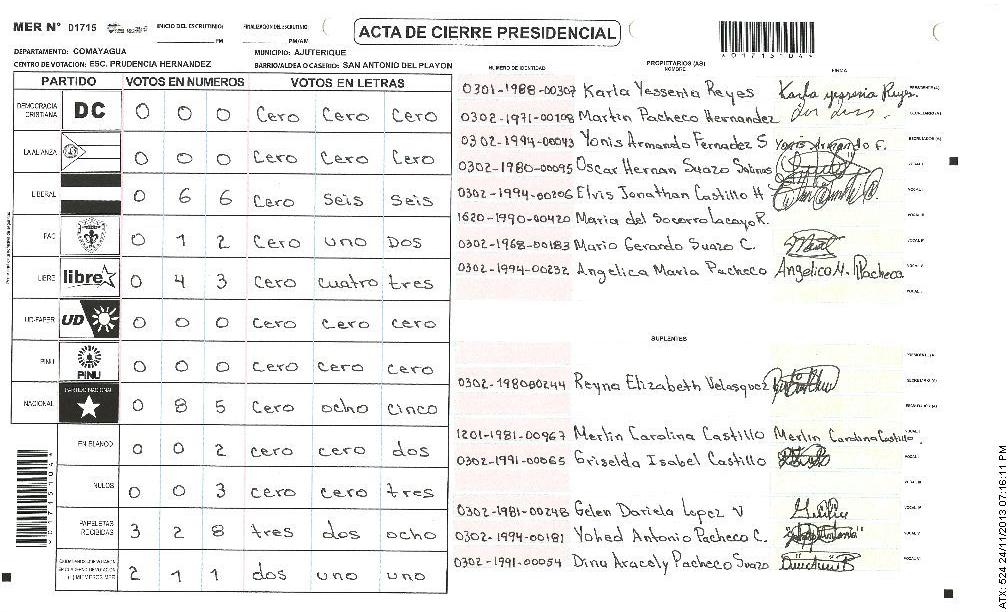 MER N° 01715 INICIO DEL ESCRUTINIO: PM FINALIZACIÓN DEL ESCRUTINIO: PM/AM
ACTA DE CIERRE PRESIDENCIAL
DEPARTAMENTO: COMAYAGUA MUNICIPIO: AJUTERIQUE
CENTRO DE VOTACION: ESC. PRUDENCIA HERNANDEZ BARRIO/ALDEA O CASERIO: SAN ANTONIO DEL PLAYON
PARTIDO VOTOS EN NUMEROS VOTOS EN LETRAS
DEMOCRACIA CRISTIANA DC 0 0 0 Cero Cero Cero
LA ALIANZA 0 0 0 Cero Cero Cero
LIBERAL 0 6 6 Cero Seis Seis
FAC 0 1 2 Cero uno Dos
LIBRE libre 0 4 3 Cero cuatro tres
UD-FAPER UD 0 0 0 cero cero cero
PINU PINU 0 0 0 cero cero cero
NACIONAL PARTIDO NACIONAL 0 8 5 Cero ocho cinco
EN BLANCO 0 0 2 cero cero dos
NULOS 0 0 3 cero cero tres
PAPELETAS RECIBIDAS 3 2 8 tres dos ocho
2 1 1 dos uno uno
NUMERO DE IDENTIDAD PROPIETARIOS (AS) NOMBRE FIRMA
0301-1988-00307 Karla Yessenia Reyes Karla yessenia Reyes PRESIDENTE (A)
0302-1971-00108 Martin Pacheco Hernandez SECRETARIO (A)
0302-1994-00043 Yonis Armando Fernadez S Yonis Armando F. ESCRUTADOR (A)
0302-1980-00095 Oscar Hernan Suazo Salinas VOCAL I
0302-1994-00206 Elvis Jonathan Castillo H
1620-1990-00420 Maria del Socorro Lacayo R.
0302-1968-00183 Mario Gerardo Suazo C.
0302-1994-00232 Angelica Maria Pacheco Angelica M. Pacheco
SUPLENTES
PRESIDENTE (A)
0302-198000244 Reyna Elizabeth Velasquez SECRETARIO (A)
ESCRUTADOR (A)
1201-1981-00967 Merlin Carolina Castillo Merlin Carolina Castillo
0302-1991-00065 Griselda Isabel Castillo
0302-1981-00248 Gelen Dariela Lopez V
0302-1994-00181 Yohed Antonio Pacheco C.
0302-1991-00054 Dina Aracely Pacheco Suazo
ATX: 524 24/11/2013 07:16:11 PM